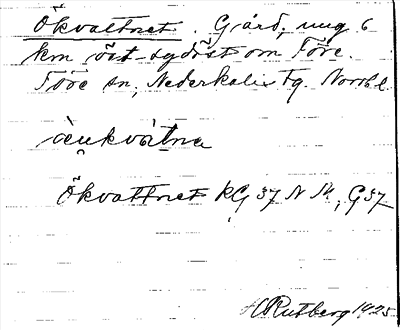 Ökvattnet. Gård, ung 6
km öst-sydöst om Töre.
Töre sn, Nederkalix tg. Norrb. l.
Ökvattnet KG 37 N 14, G37
H Rutberg 1925